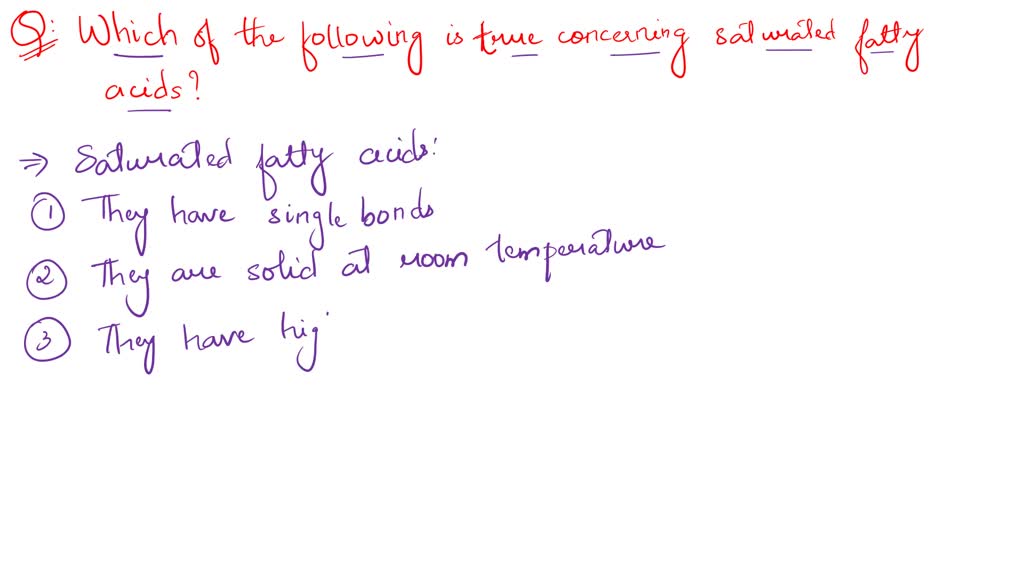 Q: Which of the following is true concerning saturated fatty
acids?
⇒ Saturated fatty acids:
① They have single bonds
② They are solid at room temperature
③ They have hig